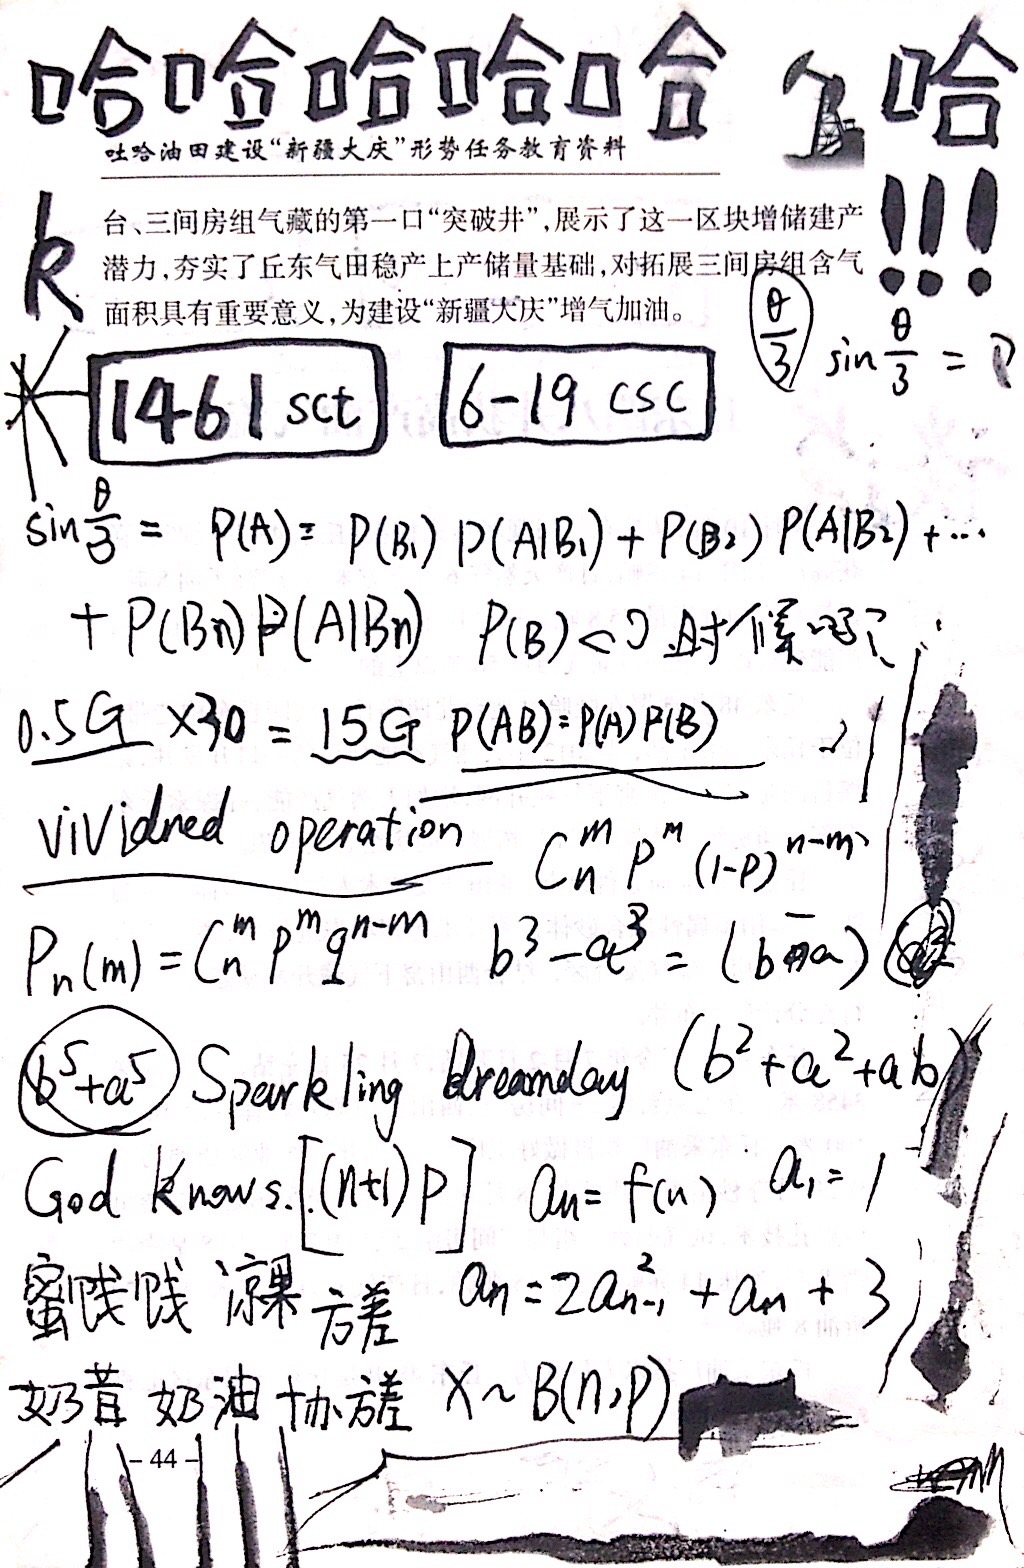 哈哈哈哈哈 哈!!!
吐哈油田建设“新疆大庆”形势任务教育资料
k
台、三间房组气藏的第一口“突破井”,展示了这一区块增储建产
潜力,夯实了丘东气田稳产上产储量基础,对拓展三间房组含气
面积具有重要意义,为建设“新疆大庆”增气加油。
θ/3 sin θ/3 =
1461 sct 6-19 csc
sin θ/3 = P(A) = P(B₁) P(A|B₁) + P(B₂) P(A|B₂) + ...
+ P(Bn) P(A|Bn) P(B)<0 时候吗?
0.5G ×30 = 15G P(AB)=P(A)P(B)
vividned operation Cₙᵐ Pᵐ (1-P)ⁿ⁻ᵐ
Pₙ(m) = Cₙᵐ Pᵐ qⁿ⁻ᵐ b³-a³ = (b-a)
b⁵+a⁵ Sparkling dreamday (b²+a²+ab)
God knows. [(n+1)p] aₙ = f(n) a₁ = 1
蜜饯饯 凉果 方差 aₙ = 2aₙ₋₁² + aₙ + 3
奶昔 奶油 协方差 X ~ B(n,p)
- 44 -